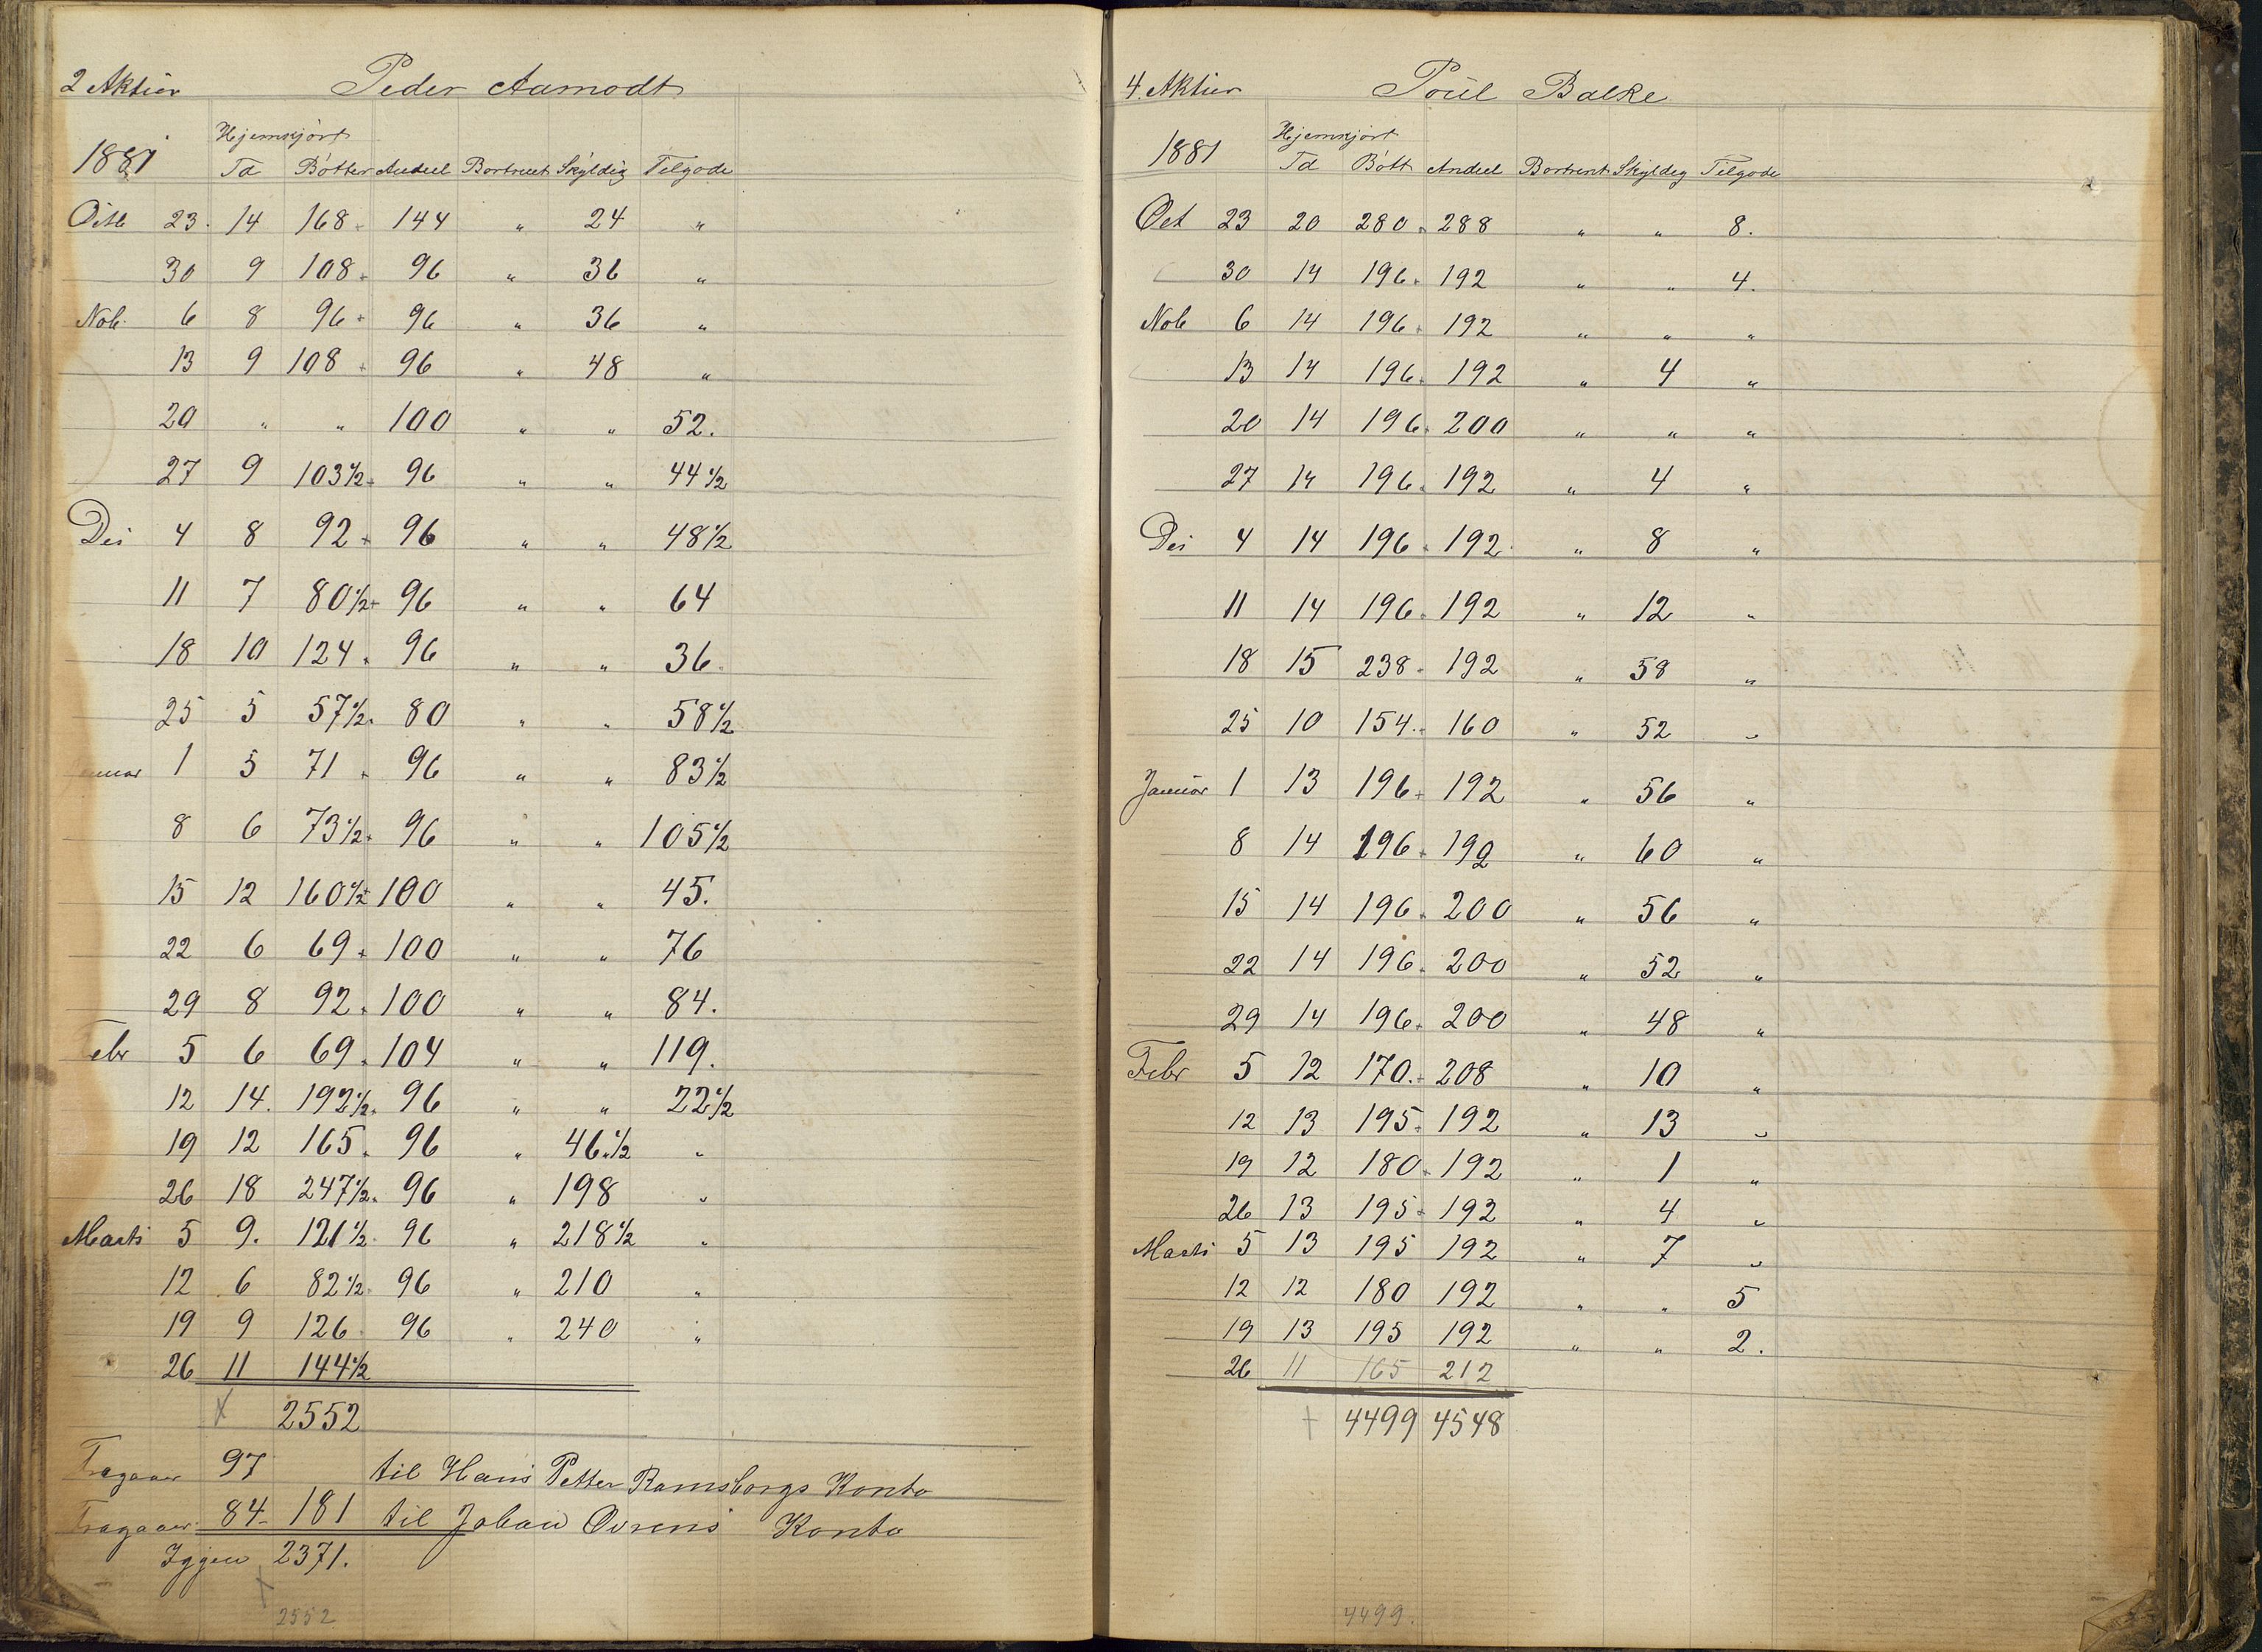 2 Aktier Peder Aamodt
Hjemkjørt
1881 Td Bøtter Andeel Bortrent Skyldig Tilgode
Octb 23. 14 168 144 " 24 "
30 9 108 96 " 36 "
Nob. 6 8 96 96 " 36 "
13 9 108 96 " 48 "
20 " " 100 " " 52.
27 9 103½ 96 " " 44½
Des 4 8 92 96 " " 48½
11 7 80½ 96 " " 64
18 10 124 96 " " 36.
25 5 57½ 80 " " 58½
anuar 1 5 71 96 " " 83½
8 6 73½ 96 " " 105½
15 12 160½ 100 " " 45.
22 6 69 100 " " 76
29 8 92 100 " " 84.
Febr 5 6 69 104 " " 119.
12 14. 192½ 96 " " 22½
19 12 165 96 " 46½ "
26 18 247½ 96 " 198 "
Marts 5 9. 121½ 96 " 218½ "
12 6 82½ 96 " 210 "
19 9 126 96 " 240 "
26 11 144½
x 2552
Fragaaer 97 til Hans Petter Ramsborgs Konto
Fragaaer 84 - 181 til Johan Ovrens Konto
Iggen 2371.
2552
4 Aktier Poul Balke
Hjemkjørt
1881 Td Bøtt Andeel Bortrent Skyldig Tilgode
Oct 23 20 280 288 " " 8.
30 14 196 192 " " 4.
Nob 6 14 196 192 " " "
13 14 196 192 " 4 "
20 14 196 200 " " "
27 14 196 192 " 4 "
Des 4 14 196 192 " 8 "
11 14 196 192 " 12 "
18 15 238 192 " 58 "
25 10 154 160 " 52 "
Januar 1 13 196 192 " 56 "
8 14 196 192 " 60 "
15 14 196 200 " 56 "
22 14 196 200 " 52 "
29 14 196 200 " 48 "
Febr 5 12 170 208 " 10 "
12 13 195 192 " 13 "
19 12 180 192 " 1 "
26 13 195 192 " 4 "
Marts 5 13 195 192 " 7 "
12 12 180 192 " " 5
19 13 195 192 " " 2.
26 11 165 212
+ 4499 4548
4499.